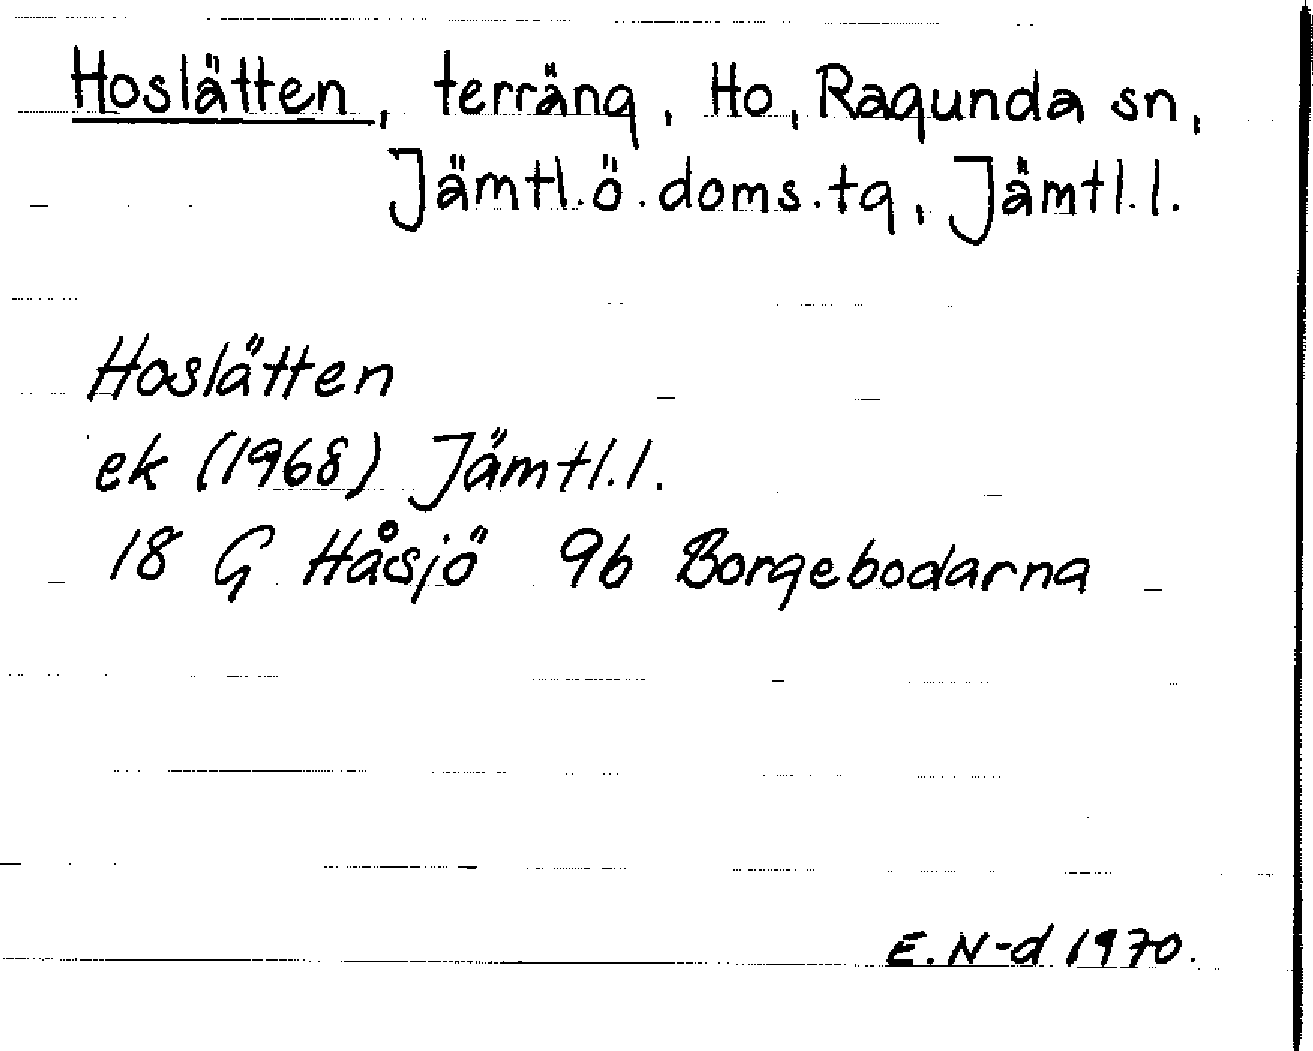 Hoslätten, terräng, Ho, Ragunda sn,
Jämtl.ö.doms.tg, Jämtl.l.
Hoslätten
ek (1968) Jämtl.l.
18 G Håsjö 9b Borgebodarna
E.N-d 1970.